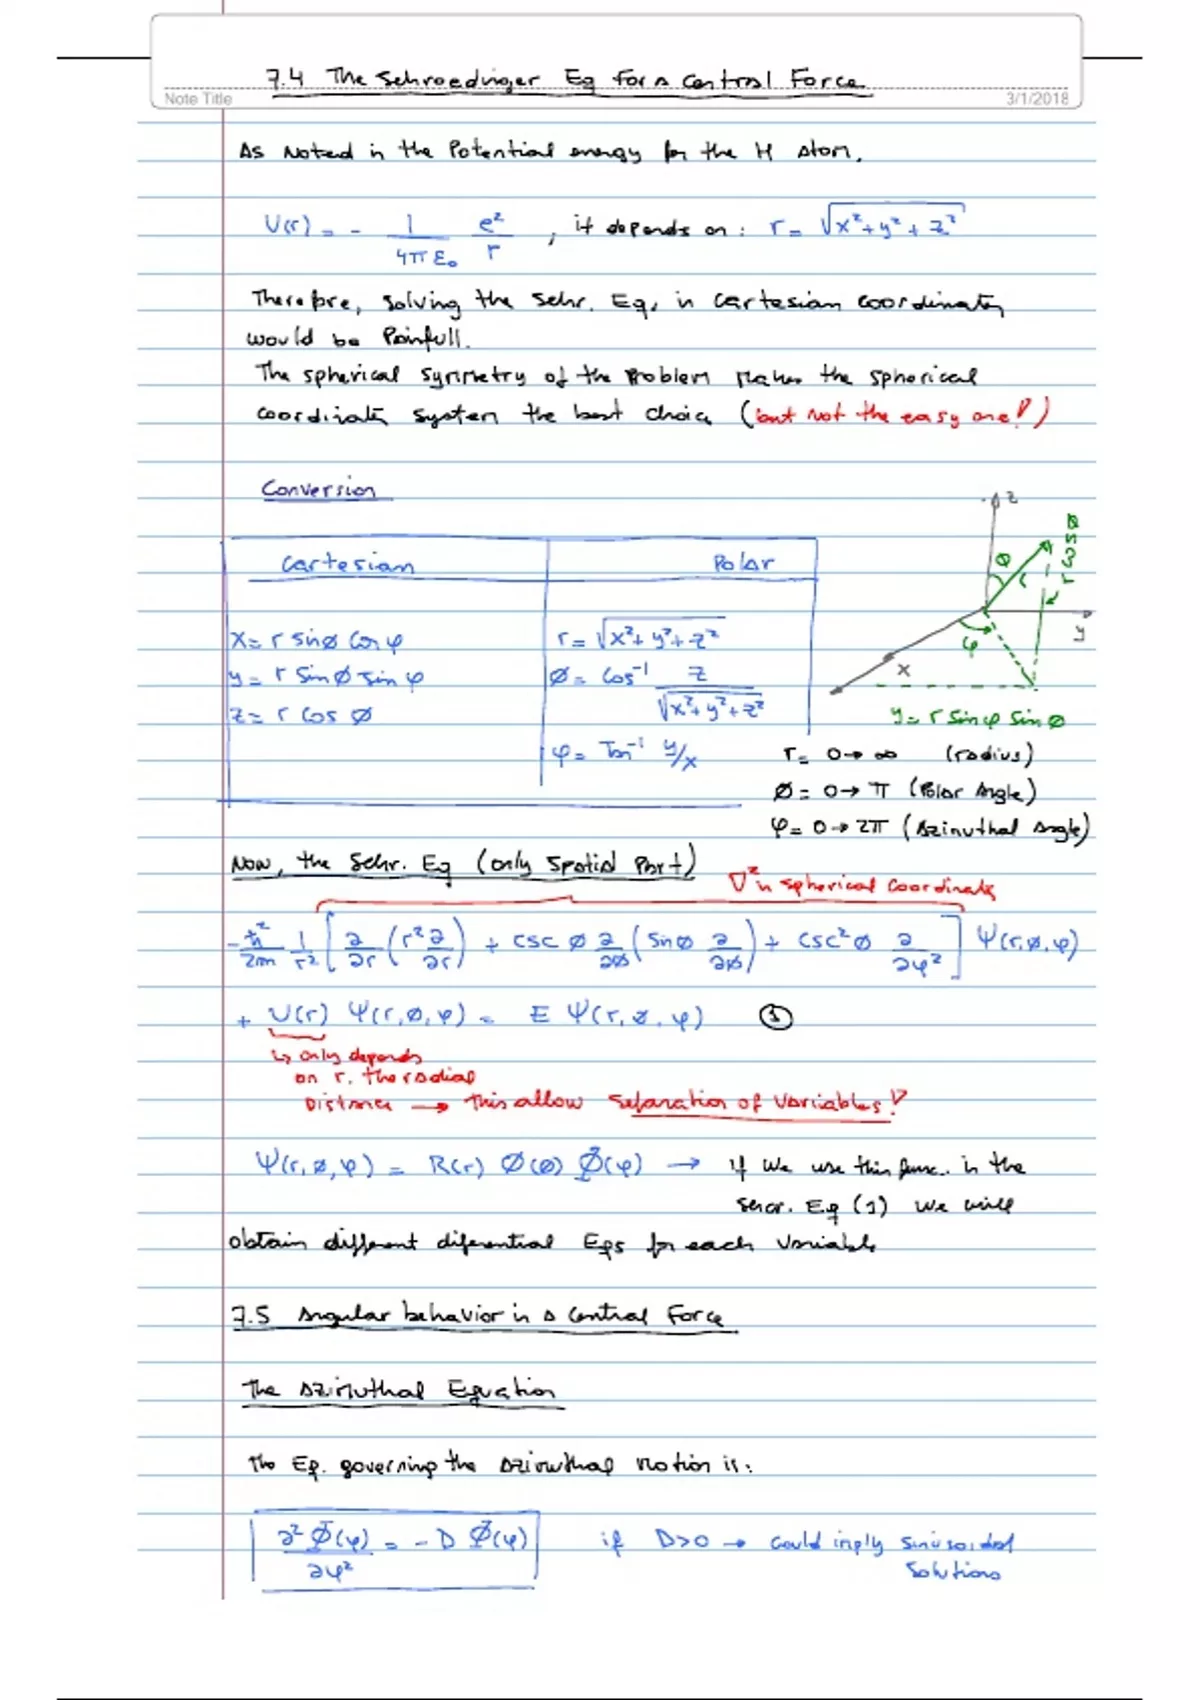 7.4 The Schroedinger Eq for a Central Force
Note Title 3/1/2018
As Noted in the Potential energy for the H atom,
U(r) = - 1/(4πε₀) e²/r , it depends on: r = √(x²+y²+z²)
Therefore, solving the Schr. Eq, in cartesian coordinates
would be Painfull.
The spherical symmetry of the problem makes the spherical
coordinate system the best choice (but not the easy one!)
Conversion
Cartesian Polar
x = r sinø cos φ r = √(x²+y²+z²)
y = r sin ø sin φ ø = cos⁻¹ z/√(x²+y²+z²)
z = r cos ø
φ = Tan⁻¹ y/x
z
ø
r
r cos ø
y
φ
x
y = r sin φ sin ø
r = 0 → ∞ (radius)
ø = 0 → π (Polar Angle)
φ = 0 → 2π (Azimuthal Angle)
Now, the Schr. Eq (only Spatial Part)
∇² in spherical coordinates
-ħ²/2m 1/r² [ ∂/∂r (r² ∂/∂r) + csc ø ∂/∂ø (sin ø ∂/∂ø) + csc² ø ∂/∂φ² ] Ψ(r,ø,φ)
+ U(r) Ψ(r,ø,φ) = E Ψ(r,ø,φ) ①
↳ only depends
on r. the radial
Distance → this allow Separation of Variables!
Ψ(r,ø,φ) = R(r) Ø(ø) Φ(φ) → if we use this func. in the
Schr. Eq (1) we will
obtain different diferential Eqs for each variable
7.5 Angular behavior in a Central Force
The Azimuthal Equation
The Eq. governing the azimuthal motion is:
∂²Φ(φ)/∂φ² = - D Φ(φ) if D>0 → could imply sinusoidal
solutions